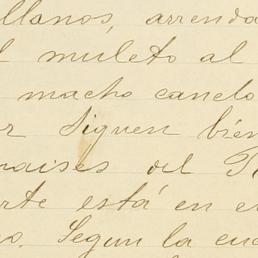 llanos, arrenda
l muleto al
macho canelo
r siguen bien
maises del P
rte está en e
o. Segun la cue